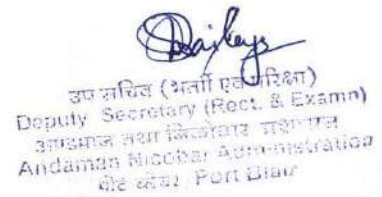 उप सचिव (भर्ती एवं परीक्षा)
Deputy Secretary (Rect. & Examn)
अण्डमान तथा निकोबार प्रशासन
Andaman Nicobar Administration
पोर्ट ब्लेयर Port Blair